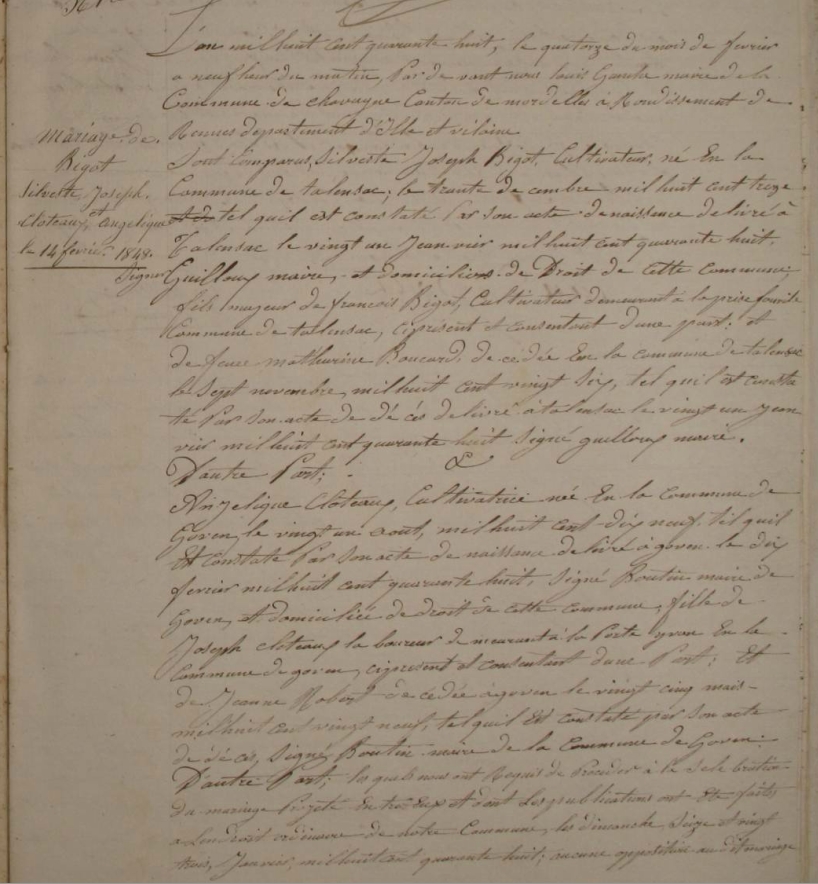 L'an mil huit cent quarante huit, le quatorze du mois de fevrier
a neuf heur du matin, Par de vant nous louis Gande maire de la
Commune de chavagne Canton de mordelles a Rondissement de
Rennes departement d'Ille et vilaine
Mariage de
Bigot
Silveste, Joseph.
et
Cloteaux, Angelique
le 14 fevrier 1848.
Sont Comparus, Silveste Joseph Bigot, Cultivateur, né En la
Commune de talensac, le trante de cembre mil huit cent treze
tel quil est constate Par son acte de naissance de livré à
Talensac le vingt un Jean vier mil huit cent quarante huit,
Guilloux maire, et domiciliers de Droit de cette commune,
fils mageur de francois Bigot, Cultivateur demeurant à la prise
Commune de talensac, ci present et consentant dune part; et
de feue mathurine Boucard, de cedée En la commune de talensac
le Sept novembre, mil huit cent vingt Six, tel quil est consta
te Par Son acte de dé cés de livré a talensac le vingt un Jean
vier mil huit cent quarante huit Signé guilloux maire.
D'autre Part; &
Angelique Cloteaux, Cultivatrice née En la Commune de
Goven, le vingt un aout, mil huit cent dix neuf, tel quil
Est constate Par Son acte de naissance de livré a goven le dix
fevrier mil huit cent quarante huit, Signé Boutin maire de
Goven, et domiciliée de droit de cette commune, fille de
Joseph cloteaux la boureur de meurant à la Porte yvon En la
Commune de goven, ci present et consentant dune Part; Et
de Jeanne Robert de cedée a goven le vingt cinq mais
mil huit cent vingt neuf, tel quil Est constaté par Son acte
de dé cés, Signé Boutin maire de la Commune de Goven.
D'autre Part; les quels nous ont Requis de Proceder à la Cele bration
du mariage Projeté Entre Eux et dont Les publications ont Ete faites
a Lendroit ordinaire de notre Commune, les dimanche Seize et vingt
trois, Janvier, mil huit cent quarante huit; aucune opposition au dit mariage